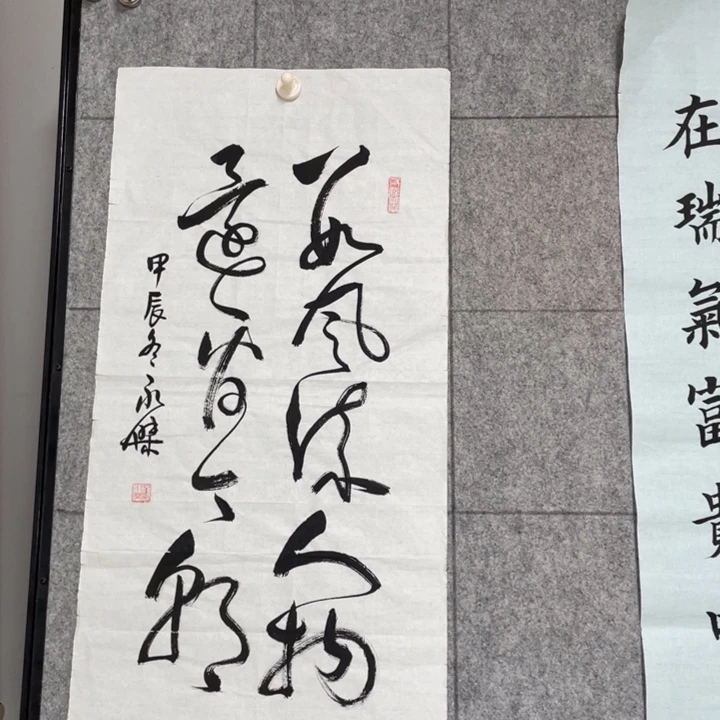 在瑞氣富貴
數風流人物
還看今朝
甲辰冬永傑